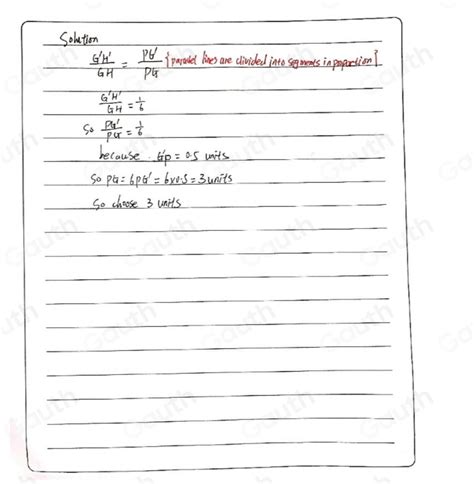 Solution
G'H'/GH = PG'/PG { parallel lines are divided into segments in proportion }
G'H'/GH = 1/6
So PG'/PG = 1/6
because G'p = 0.5 units
So PG = 6PG' = 6x0.5 = 3 units
So choose 3 units